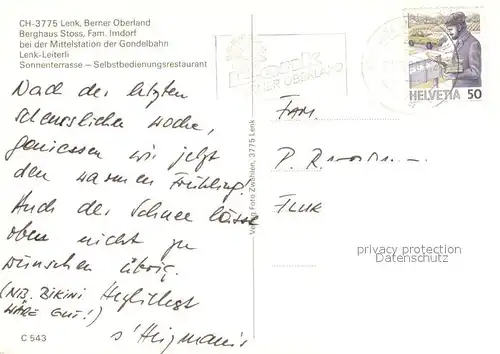 CH-3775 Lenk, Berner Oberland
Berghaus Stoss, Fam. Imdorf
bei der Mittelstation der Gondelbahn
Lenk-Leiterli
Sonnenterrasse – Selbstbedienungsrestaurant
Nach der letzten
scheusslichen Woche,
geniessen wir jetzt
den warmen Frühling!
Auch der Schnee lässt
oben nicht zu
wünschen übrig.
(NB. BIKINI
WÄRE GUT!)
C 543
Verlag Foto Zwahlen, 3775 Lenk
Lenk
BERNER OBERLAND
HELVETIA 50
FAM.
P.
privacy protection
Datenschutz